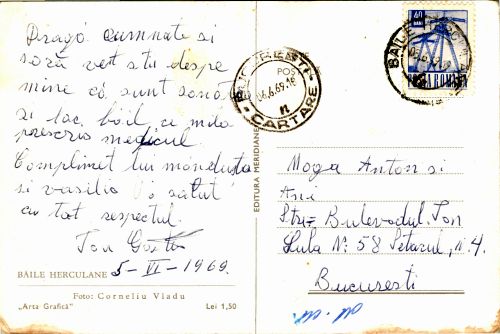 Dragă cumnate si
soră veți stii despre
mine că sunt sonătos
și fac, băi, ce mia
prescris medicul.
Compliment lui mănduța
si vasilie vă salut
cu tot respectul.
Ion
5-VI-1969.
BĂILE HERCULANE
Foto: Corneliu Vladu
„Arta Grafică”
Lei 1,50
EDITURA MERIDIANE
BUCUREȘTI
POȘ
06.6.69.18
n
CARTARE
40
BANI
POSTA ROMANA
BĂILE
Moga Anton si
Ani
Str: Bulevodul. Ion
Șula N: 58 Setarul, n. 4.
Bucuresti